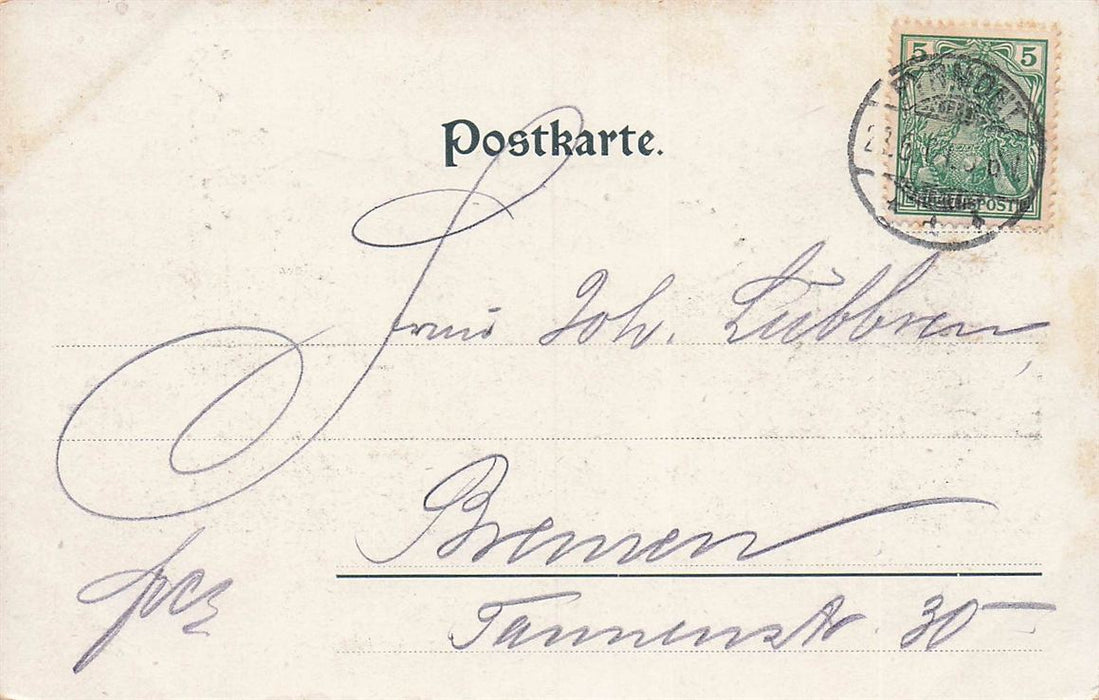 5 5
REICHSPOST
Postkarte.
Frau Joh. Lübbren,
Bremen
Tannenstr. 30